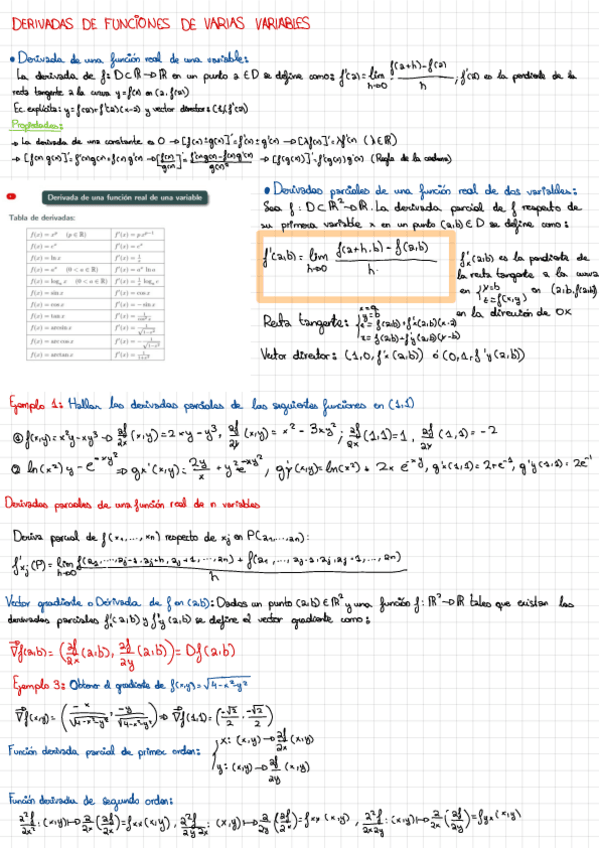 DERIVADAS DE FUNCIONES DE VARIAS VARIABLES
• Derivada de una función real de una variable:
La derivada de f: D⊂ℝ→ℝ en un punto a∈D se define como: f'(a)=lim h→0 (f(a+h)-f(a))/h ; f'(a) es la pendiente de la
recta tangente a la curva y=f(x) en (a, f(a))
Ec. explícita: y=f(a)+f'(a)(x-a) y vector director: (1, f'(a))
Propiedades:
→ La derivada de una constante es 0 → [f(x)±g(x)]'=f'(x)±g'(x) → [λf(x)]'=λf'(x) (λ∈ℝ)
→ [f(x)g(x)]'=f'(x)g(x)+f(x)g'(x) → [f(x)/g(x)]'=(f'(x)g(x)-f(x)g'(x))/g(x)² → [f(g(x))]'=f'(g(x))g'(x) (Regla de la cadena)
Derivada de una función real de una variable
Tabla de derivadas:
f(x) = x^p (p ∈ ℝ) f'(x) = p x^{p-1}
f(x) = e^x f'(x) = e^x
f(x) = ln x f'(x) = 1/x
f(x) = a^x (0 < a ∈ ℝ) f'(x) = a^x ln a
f(x) = log_a x (0 < a ∈ ℝ) f'(x) = 1/x log_a e
f(x) = sin x f'(x) = cos x
f(x) = cos x f'(x) = − sin x
f(x) = tan x f'(x) = 1/cos² x
f(x) = arcsin x f'(x) = 1/√(1−x²)
f(x) = arc cos x f'(x) = −1/√(1−x²)
f(x) = arctan x f'(x) = 1/(1+x²)
• Derivadas parciales de una función real de dos variables:
Sea f: D⊂ℝ²→ℝ. La derivada parcial de f respecto de
su primera variable x en un punto (a,b)∈D se define como:
f'(a,b)=lim h→0 (f(a+h,b)-f(a,b))/h
f'x(a,b) es la pendiente de
la recta tangente a la curva
en {y=b z=f(x,y) en (a,b,f(a,b))
en la dirección de OX
Recta tangente: {x=a y=b z=f(a,b)+f'x(a,b)(x-a) z=f(a,b)+f'y(a,b)(y-b)
Vector director: (1,0,f'x(a,b)) ó (0,1,f'y(a,b))
Ejemplo 1: Hallar las derivadas parciales de las siguientes funciones en (1,1)
① f(x,y)=x²y-xy³ → ∂f/∂x (x,y)=2xy-y³, ∂f/∂y (x,y)=x²-3xy²; ∂f/∂x (1,1)=1, ∂f/∂y (1,1)=-2
② ln(x²)y-e^{-xy²} ⇒ gx'(x,y)=2y/x+y²e^{-xy²}, g'y(x,y)=ln(x²)+2xe^{-xy}, g'x(1,1)=2+e⁻¹, g'y(1,1)=2e⁻¹
Derivadas parciales de una función real de n variables
Deriva parcial de f(x₁,...,xn) respecto de xj en P(a₁,...,an):
f'xj(P)=lim h→0 (f(a₁,...,aj-1,aj+h,aj+1,...,an)+f(a₁,...,aj-1,aj,aj+1,...,an))/h
Vector gradiente o Derivada de f en (a,b): Dados un punto (a,b)∈ℝ² y una función f: ℝ²→ℝ tales que existan las
derivadas parciales f'x(a,b) y f'y(a,b) se define el vector gradiente como:
∇f(a,b)=(∂f/∂x (a,b), ∂f/∂y (a,b))=Df(a,b)
Ejemplo 3: Obtener el gradiente de f(x,y)=√(4-x²-y²)
∇f(x,y)=(-x/√(4-x²-y²), -y/√(4-x²-y²)) ⇒ ∇f(1,1)=(-√2/2, -√2/2)
Función derivada parcial de primer orden: {x: (x,y)→∂f/∂x (x,y)
y: (x,y)→∂f/∂y (x,y)
Función derivada de segundo orden:
∂²f/∂x²: (x,y)↦∂/∂x(∂f/∂x)=fxx(x,y), ∂²f/∂y∂x: (x,y)↦∂/∂y(∂f/∂x)=fxy(x,y), ∂²f/∂x∂y: (x,y)↦∂/∂x(∂f/∂y)=fyx(x,y)